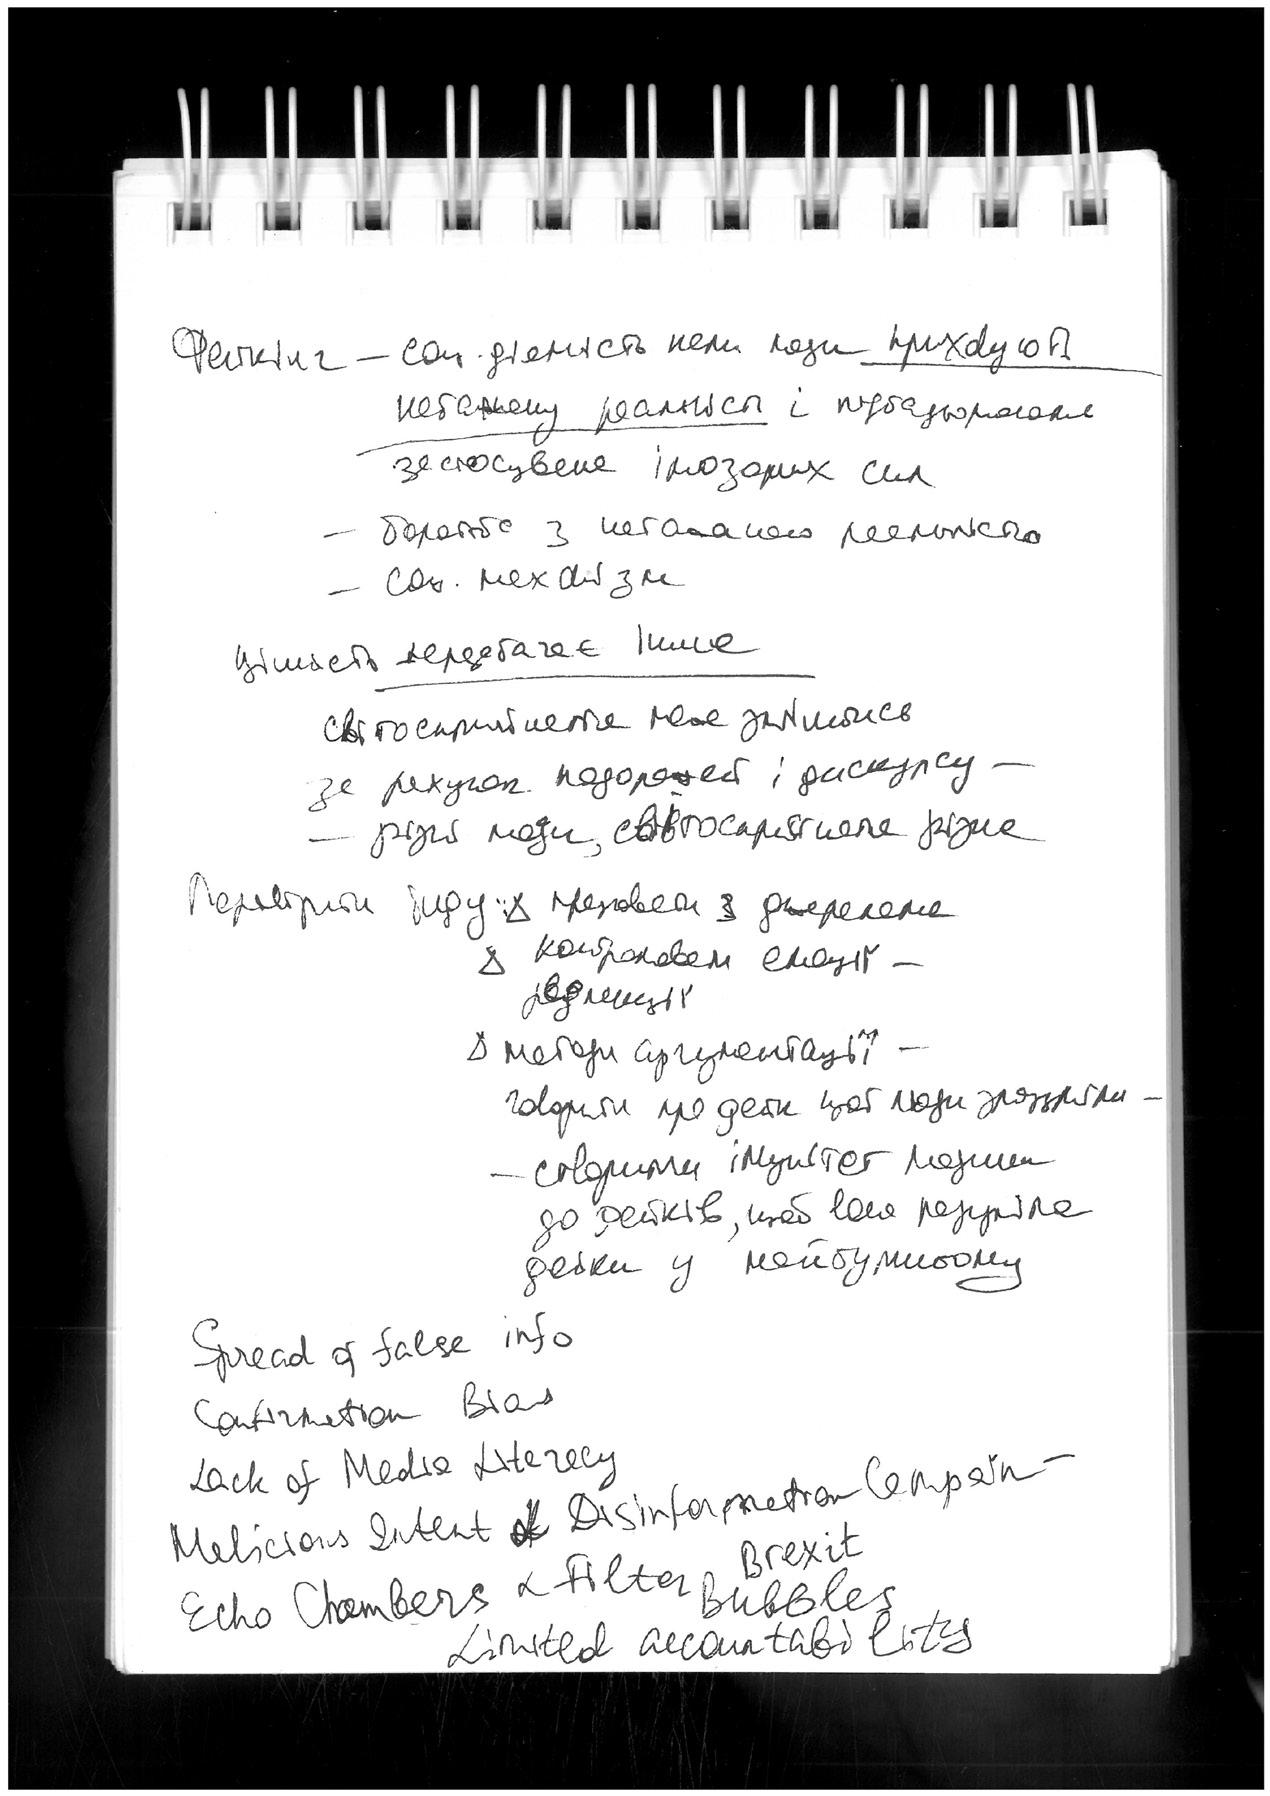 Фейкінг – соц. діяльність коли люди приховують
небажану реальність і
застосування ілюзорних сил
– боротьба з небажаною реальністю
– соц. механізм
Цінність передбачає інше
світосприйняття може змінитись
за рахунок подорожей і дискурсу –
– різні люди, світосприйняття різне
Перевірити інфу: Δ працювати з джерелами
Δ контролювати емоції –
Δ методи аргументації –
говорити про фейк щоб люди зрозуміли –
– створити імунітет людини
до фейків, щоб вона розуміла
фейки у майбутньому
Spread of false info
Confirmation Bias
Lack of Media Literacy
Malicious Intent & Disinformation Campain –
Brexit
Echo Chambers & Filter Bubbles
Limited accountability